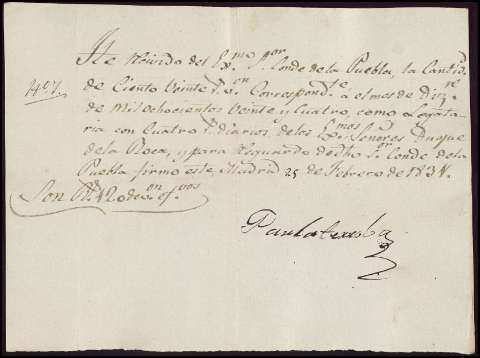 He Recivido del Ex.mo S.or Conde de la Puebla, la Cantid.d
1407.
de Ciento Veinte r.s v.on Correspond.te a el mes de Diz.re
de Mil ochocientos Veinte y Cuatro, como Legata-
ria con Cuatro r.s diarios, de los Ex.mos Señores Duque
de la Roca, y para Resguardo de dho S.or Conde de la
Puebla firmo este, Madrid 25 de Febrero de 183
Son R.s 120 de v.on ef.vos
Paula